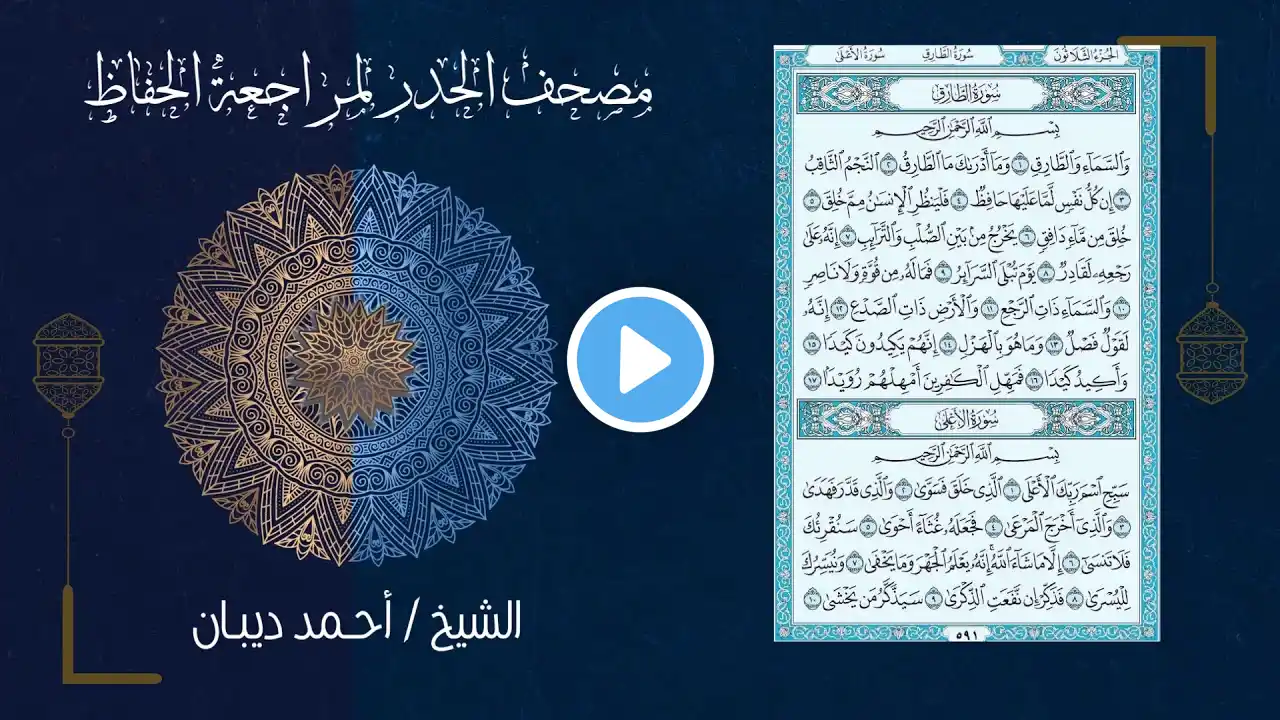 مصحف الحدر لمراجعة الحفاظ
الشيخ / أحمد ديبان
الجزء الثلاثون سورة الطارق سورة الأعلى
سورة الطارق
بِسْمِ اللَّهِ الرَّحْمَٰنِ الرَّحِيمِ
وَالسَّمَاءِ وَالطَّارِقِ ١ وَمَا أَدْرَىٰكَ مَا الطَّارِقُ ٢ النَّجْمُ الثَّاقِبُ
٣ إِن كُلُّ نَفْسٍ لَّمَّا عَلَيْهَا حَافِظٌ ٤ فَلْيَنظُرِ الْإِنسَٰنُ مِمَّ خُلِقَ ٥
خُلِقَ مِن مَّاءٍ دَافِقٍ ٦ يَخْرُجُ مِنۢ بَيْنِ الصُّلْبِ وَالتَّرَائِبِ ٧ إِنَّهُۥ عَلَىٰ
رَجْعِهِۦ لَقَادِرٌ ٨ يَوْمَ تُبْلَى السَّرَائِرُ ٩ فَمَا لَهُۥ مِن قُوَّةٍ وَلَا نَاصِرٍ
١٠ وَالسَّمَاءِ ذَاتِ الرَّجْعِ ١١ وَالْأَرْضِ ذَاتِ الصَّدْعِ ١٢ إِنَّهُۥ
لَقَوْلٌ فَصْلٌ ١٣ وَمَا هُوَ بِالْهَزْلِ ١٤ إِنَّهُمْ يَكِيدُونَ كَيْدًا ١٥
وَأَكِيدُ كَيْدًا ١٦ فَمَهِّلِ الْكَٰفِرِينَ أَمْهِلْهُمْ رُوَيْدًۢا ١٧
سورة الأعلى
بِسْمِ اللَّهِ الرَّحْمَٰنِ الرَّحِيمِ
سَبِّحِ اسْمَ رَبِّكَ الْأَعْلَى ١ الَّذِي خَلَقَ فَسَوَّىٰ ٢ وَالَّذِي قَدَّرَ فَهَدَىٰ
٣ وَالَّذِي أَخْرَجَ الْمَرْعَىٰ ٤ فَجَعَلَهُۥ غُثَاءً أَحْوَىٰ ٥ سَنُقْرِئُكَ
فَلَا تَنسَىٰ ٦ إِلَّا مَا شَاءَ اللَّهُ إِنَّهُۥ يَعْلَمُ الْجَهْرَ وَمَا يَخْفَىٰ ٧ وَنُيَسِّرُكَ
لِلْيُسْرَىٰ ٨ فَذَكِّرْ إِن نَّفَعَتِ الذِّكْرَىٰ ٩ سَيَذَّكَّرُ مَن يَخْشَىٰ ١٠
٥٩١